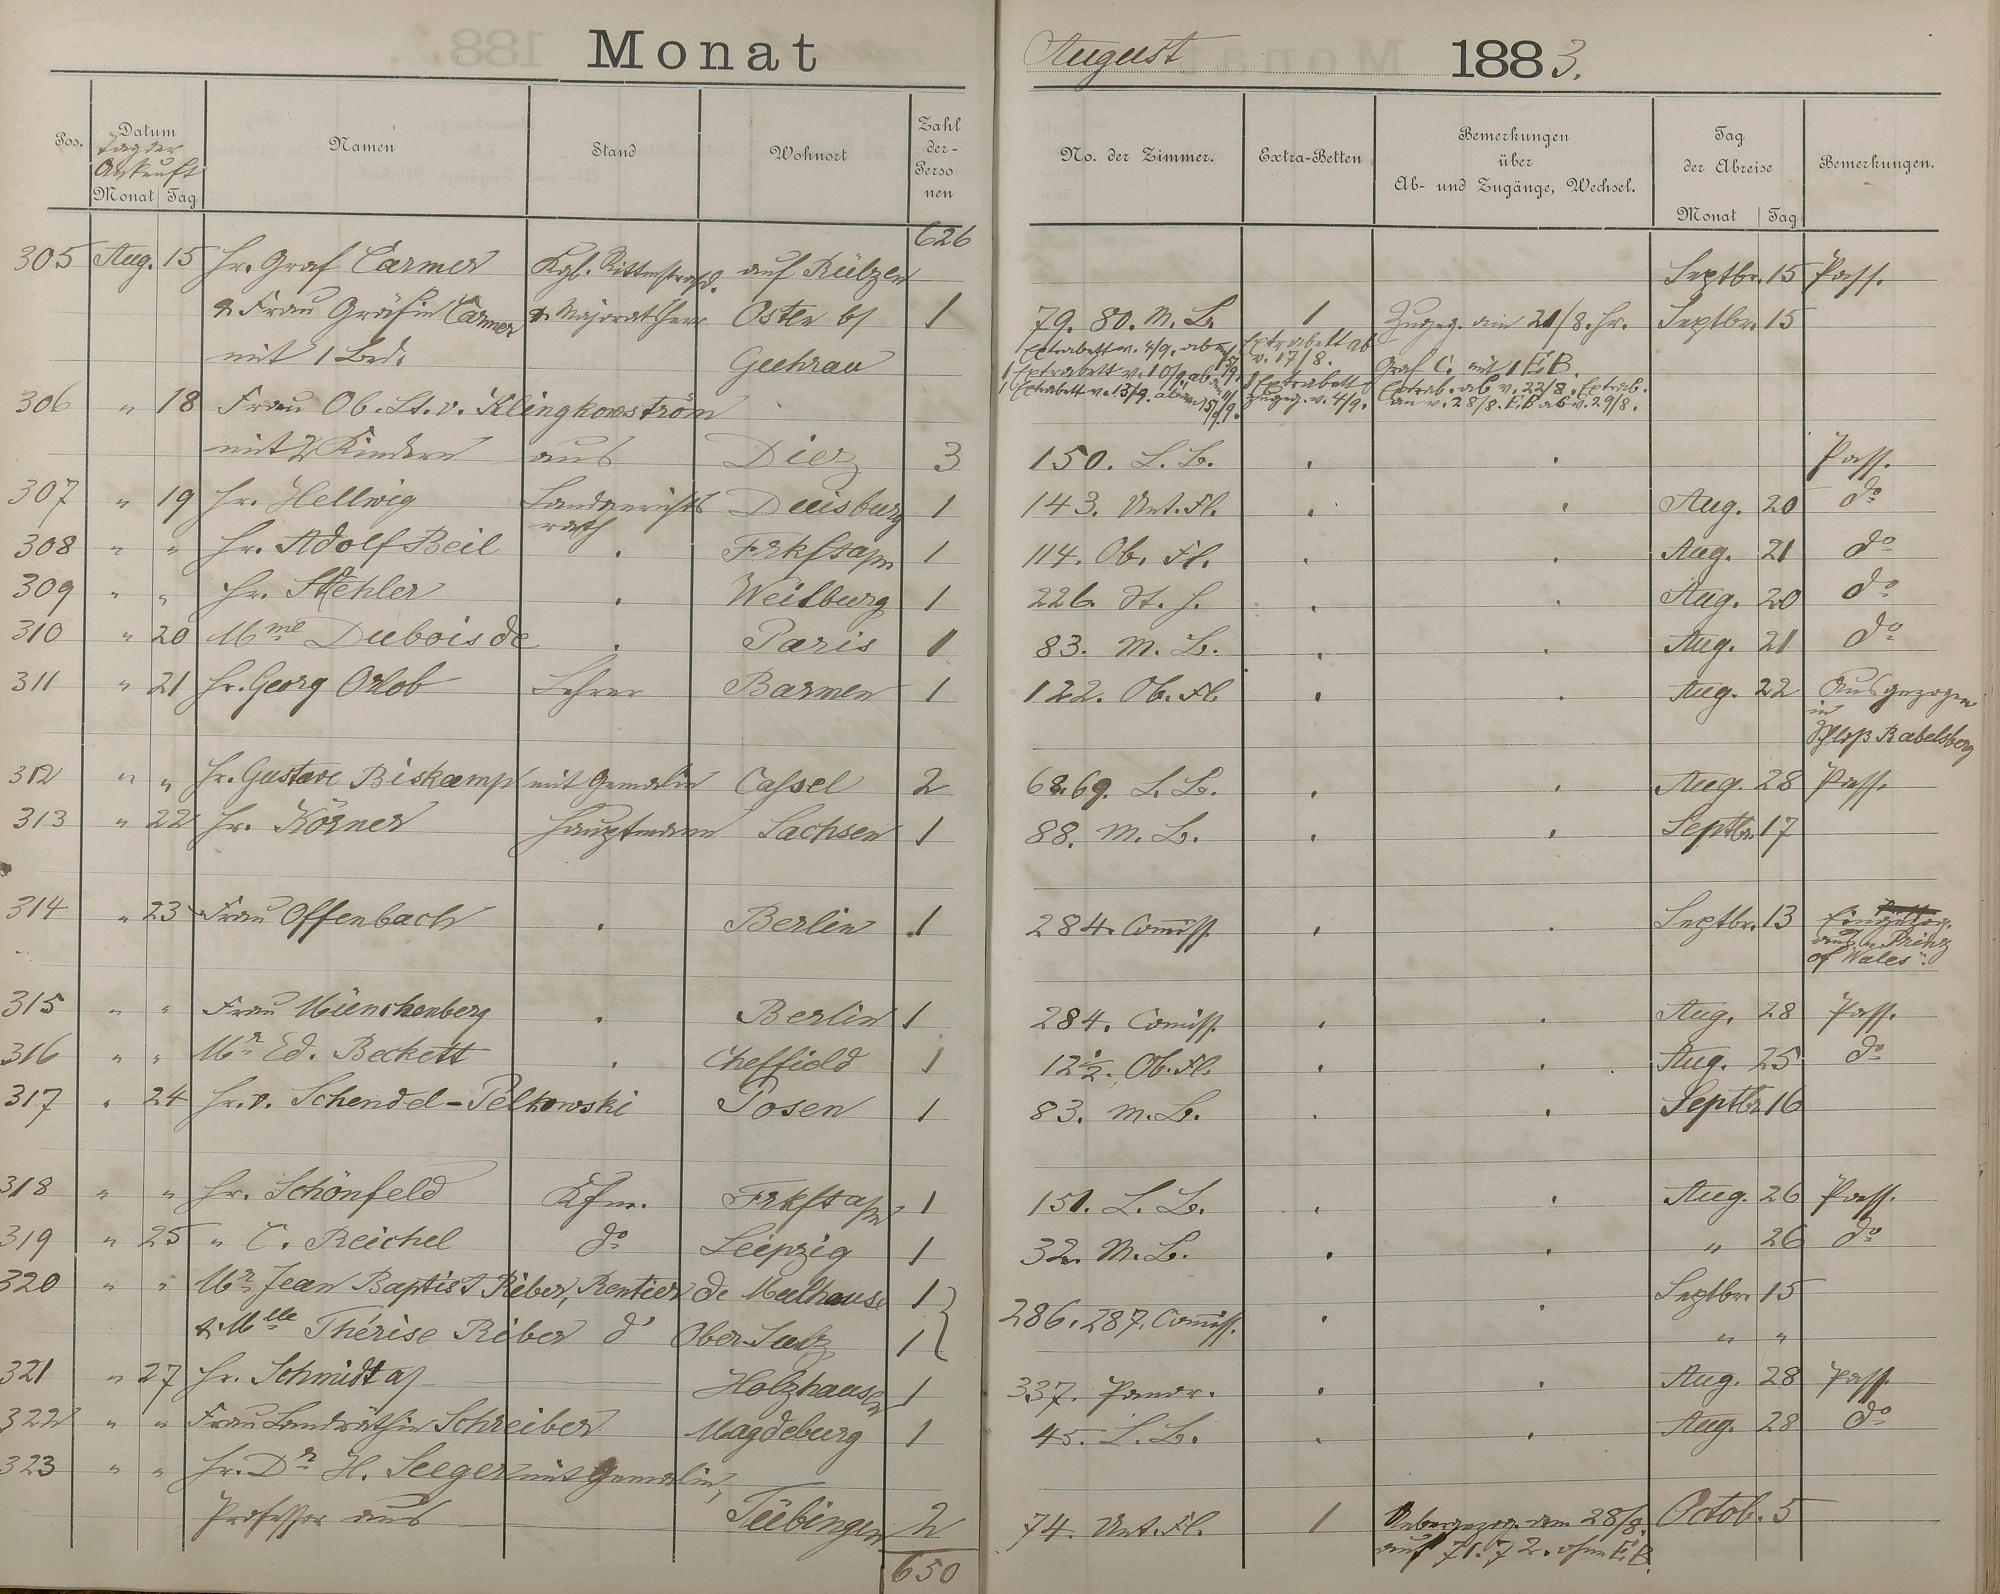 Monat August 1883.
Pos. Datum Namen Stand Wohnort Zahl der Personen No. der Zimmer. Extra-Betten Bemerkungen über Ab- und Zugänge, Wechsel. Tag der Abreise Bemerkungen.
Tag der Ankunft
Monat Tag Monat Tag
626
305 Aug. 15 Hr. Graf Carmer Kgl. auf Rützen Septbr. 15 Pass.
& Frau Gräfin Carmer & Majoratsherr Osten b/ 1 79. 80. M. B. 1 Zugez. am 21/8. Hr. Septbr. 15
mit 1 Bed. Guhrau Extrabett v. 4/9. ab Extrabett ab v. 17/8. Graf C. mit 1 E.B.
1 Extrabett v. 10/9. ab 1 Extrabett Extrab. ab v. 22/8. Extrab.
306 " 18 Frau Ob. Lt. v. Klingkowström 1 Extrabett v. 13/9. zugez. v. 4/9. an v. 28/8. E.B ab v. 29/8.
mit 2 Kindern aus Diez 3 150. L. B. Pass.
307 " 19 Hr. Hellwig Landgerichts Duisburg 1 143. Unt. Fl. Aug. 20 do
rath
308 " " Hr. Adolf Beil Frkft a/m 1 114. Ob. Fl. Aug. 21 do
309 " " Hr. Stehler Weilburg 1 226. St. H. Aug. 20 do
310 " 20 Mme Dubois de Paris 1 83. M. B. Aug. 21 do
311 " 21 Hr. Georg Orlob Lehrer Barmen 1 122. Ob. Fl. Aug. 22 Ausgezogen
in
Schloß Babelsberg
312 " " Hr. Gustave Biskamp mit Gemalin Cassel 2 68. 69. L. B. Aug. 28 Pass.
313 " 22 Hr. Körner Hauptmann Sachsen 1 88. M. B. Septbr. 17
314 " 23 Frau Offenbach Berlin 1 284. Comiss. Septbr. 13 Eingezog.
aus „Prinz
of Wales".
315 " " Frau Münchenberg Berlin 1 284. Comiss. Aug. 28 Pass.
316 " " Mr Ed. Beckett Cheffield 1 12 1/2. Ob. Fl. Aug. 25 do
317 " 24 Hr. v. Schendel-Pelkowski Posen 1 83. M. B. Septbr. 16
318 " " Hr. Schönfeld Kfm. Frkft a/m 1 151. L. B. Aug. 26 Pass.
319 " 25 " C. Reichel do Leipzig 1 32. M. B. " 26 do
320 " " Mr Jean Baptist Riber, Rentier de Mulhouse 1 Septbr. 15
& Mlle Thérise Riber d' Ober-Sulz 1 286. 287. Comiss. " "
321 " 27 Hr. Schmidt a/ Holzhausen 1 337. Panor. Aug. 28 Pass.
322 " " Frau Landräthin Schreiber Magdeburg 1 45. L. B. Aug. 28 do
323 " " Hr. Dr H. Seeger mit Gemalin,
Professor aus Tübingen 2 74. Unt. Fl. 1 Uebergezog. am 28/8. Octob. 5
auf 71. 72. ohne E.B.
650